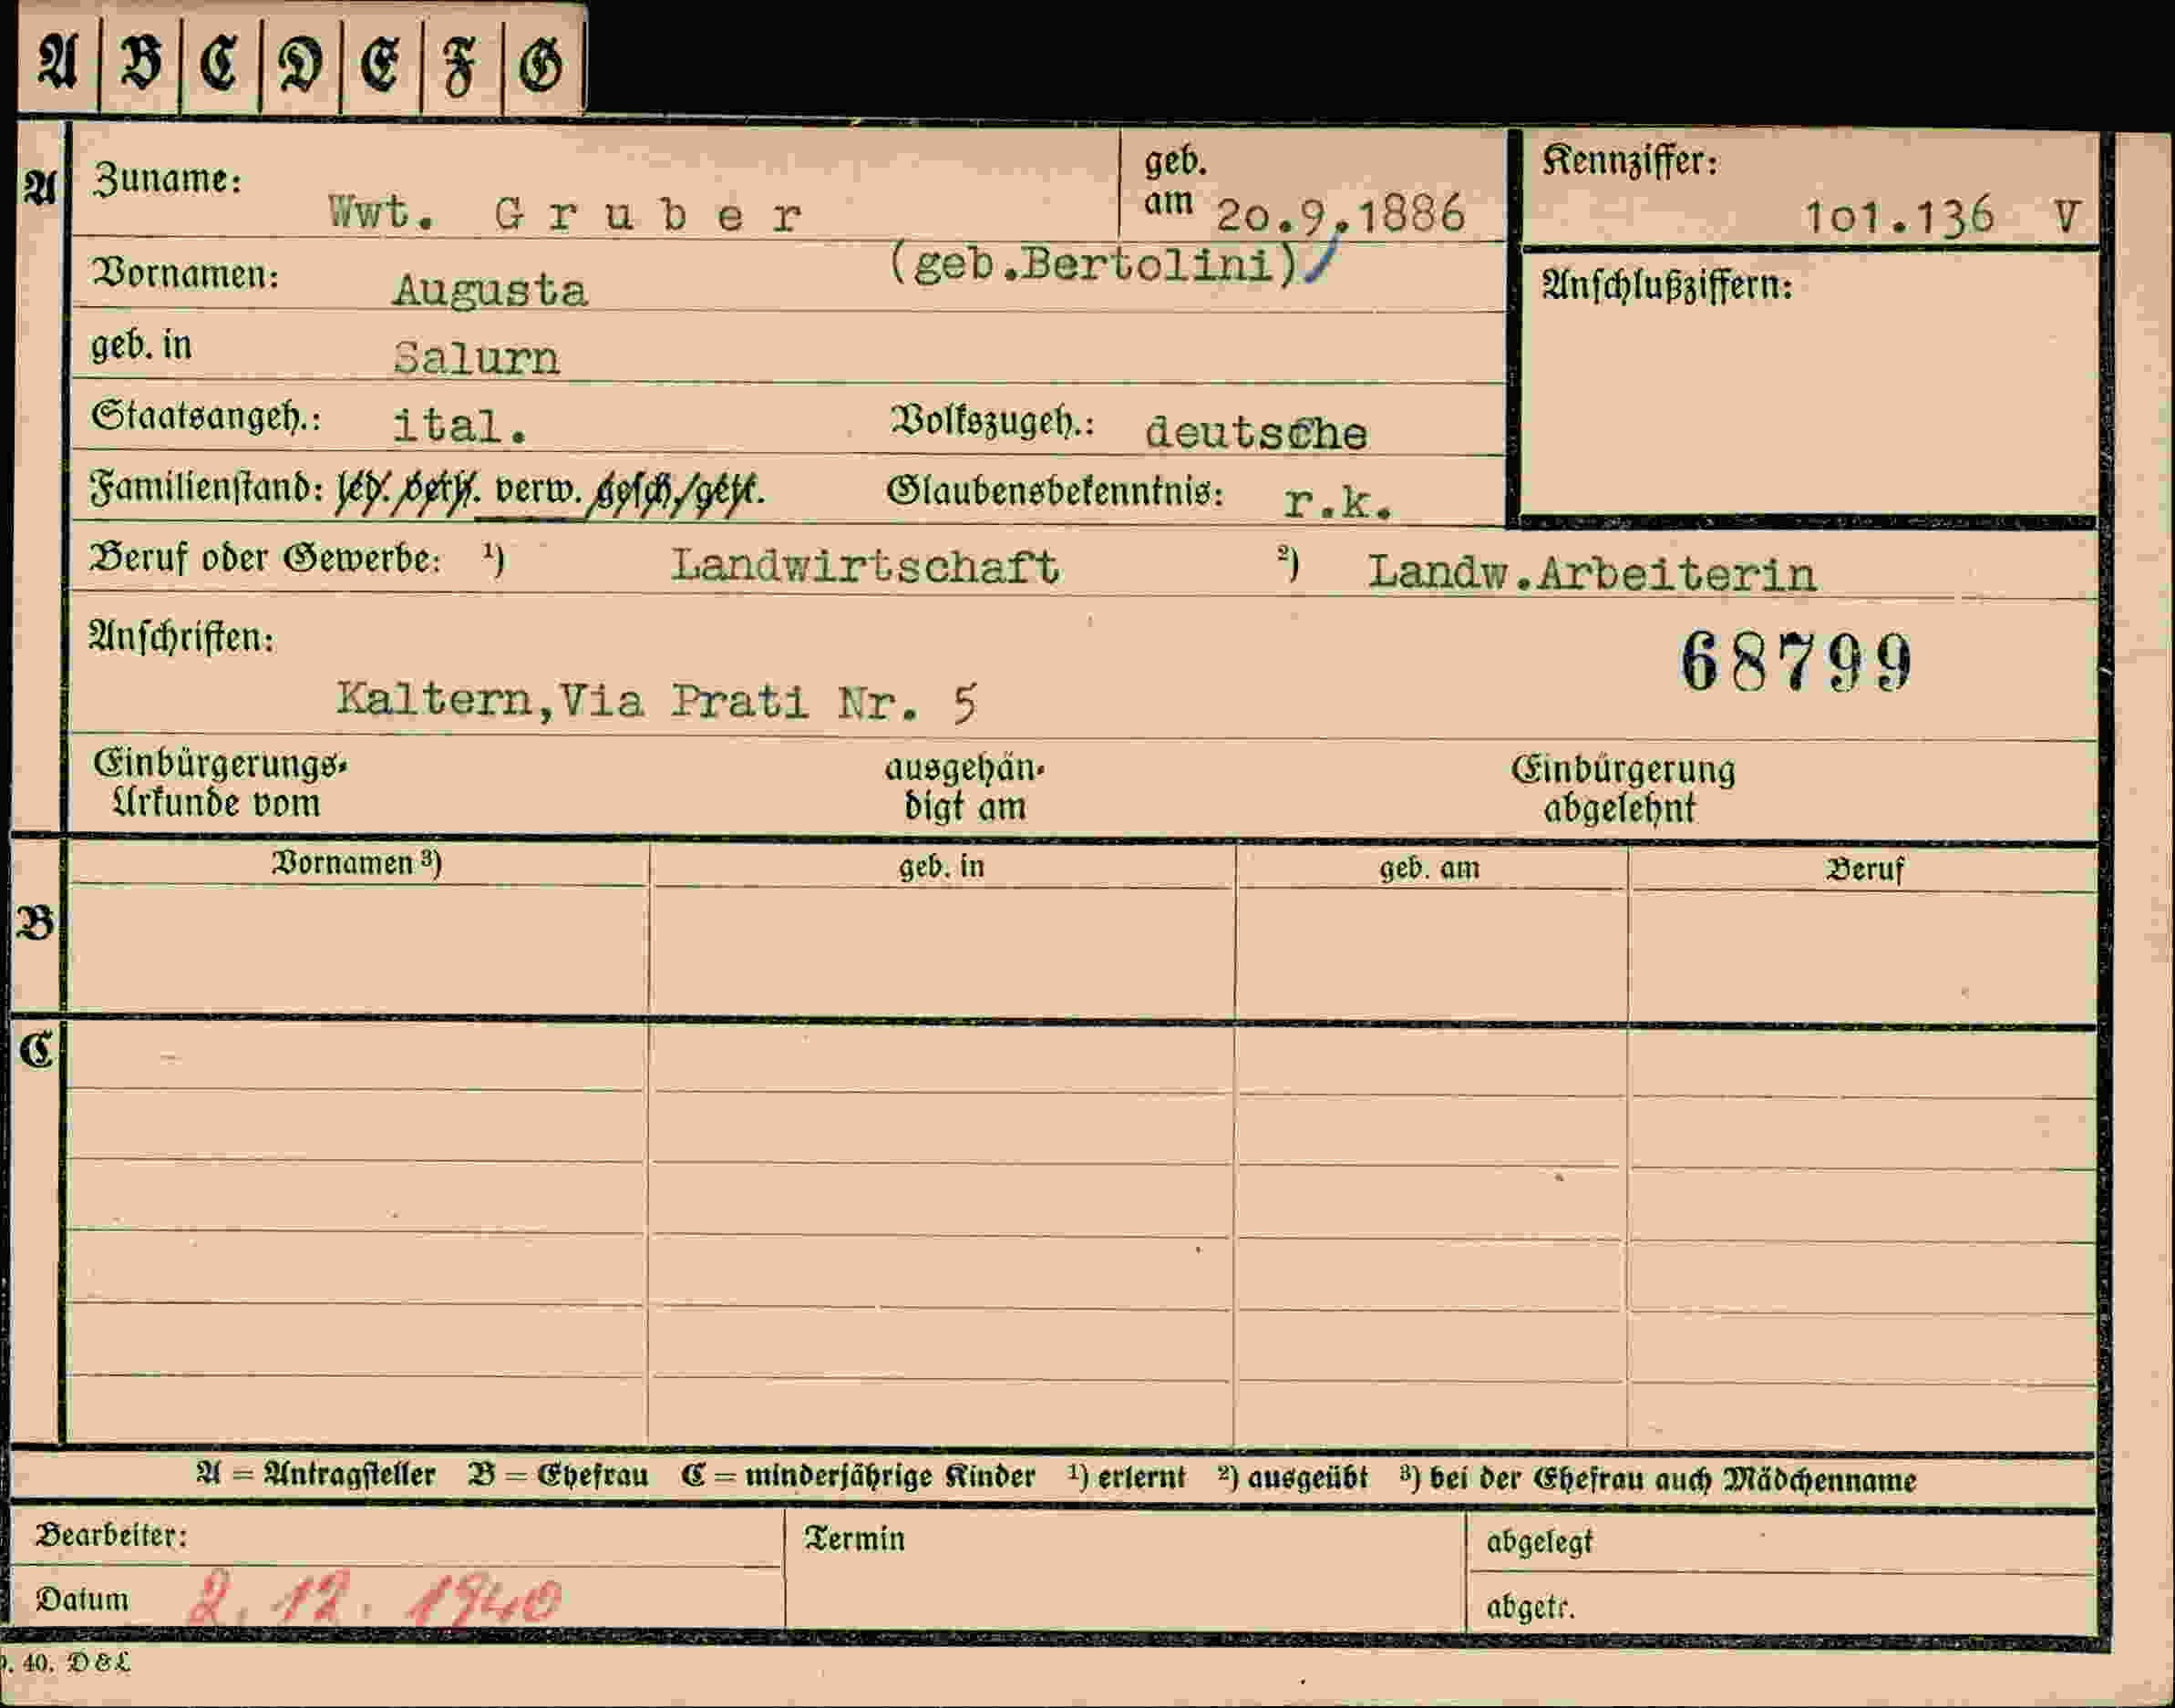 A B C D E F G
A Zuname: Wwt. Gruber geb. am 20.9.1886 Kennziffer: 101.136 V
Vornamen: Augusta (geb.Bertolini) Anschlußziffern:
geb. in Salurn
Staatsangeh.: ital. Volkszugeh.: deutsche
Familienstand: led. verh. verw. gesch./getr. Glaubensbekenntnis: r.k.
Beruf oder Gewerbe: ¹) Landwirtschaft ²) Landw.Arbeiterin
Anschriften: 68799
Kaltern,Via Prati Nr. 5
Einbürgerungs- ausgehän- Einbürgerung
Urkunde vom digt am abgelehnt
Vornamen ³) geb. in geb. am Beruf
B
C
A = Antragsteller B = Ehefrau C = minderjährige Kinder ¹) erlernt ²) ausgeübt ³) bei der Ehefrau auch Mädchenname
Bearbeiter: Termin abgelegt
Datum 2. 12. 1940 abgetr.
. 40. D & L